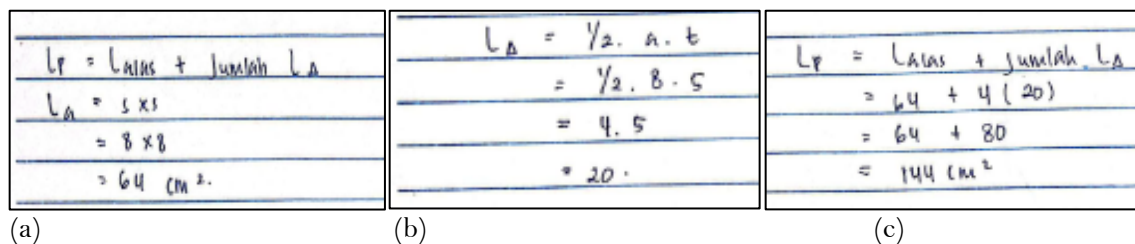 Lp = Lalas + Jumlah L∆
La = s x s
= 8 x 8
= 64 cm².
(a)
L∆ = 1/2 . a . t
= 1/2 . 8 . 5
= 4 . 5
= 20 .
(b)
Lp = Lalas + Jumlah L∆
= 64 + 4 ( 20 )
= 64 + 80
= 144 cm²
(c)